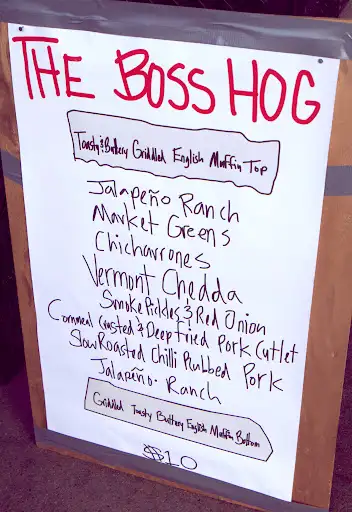 THE BOSS HOG
Toasty & Buttery Griddled English Muffin Top
Jalapeño Ranch
Market Greens
Chicharrones
Vermont Chedda
Smoke Pickles & Red Onion
Cornmeal Crusted & Deep Fried Pork Cutlet
Slow Roasted Chilli Rubbed Pork
Jalapeño Ranch
Griddled Toasty Buttery English Muffin Bottom
$10